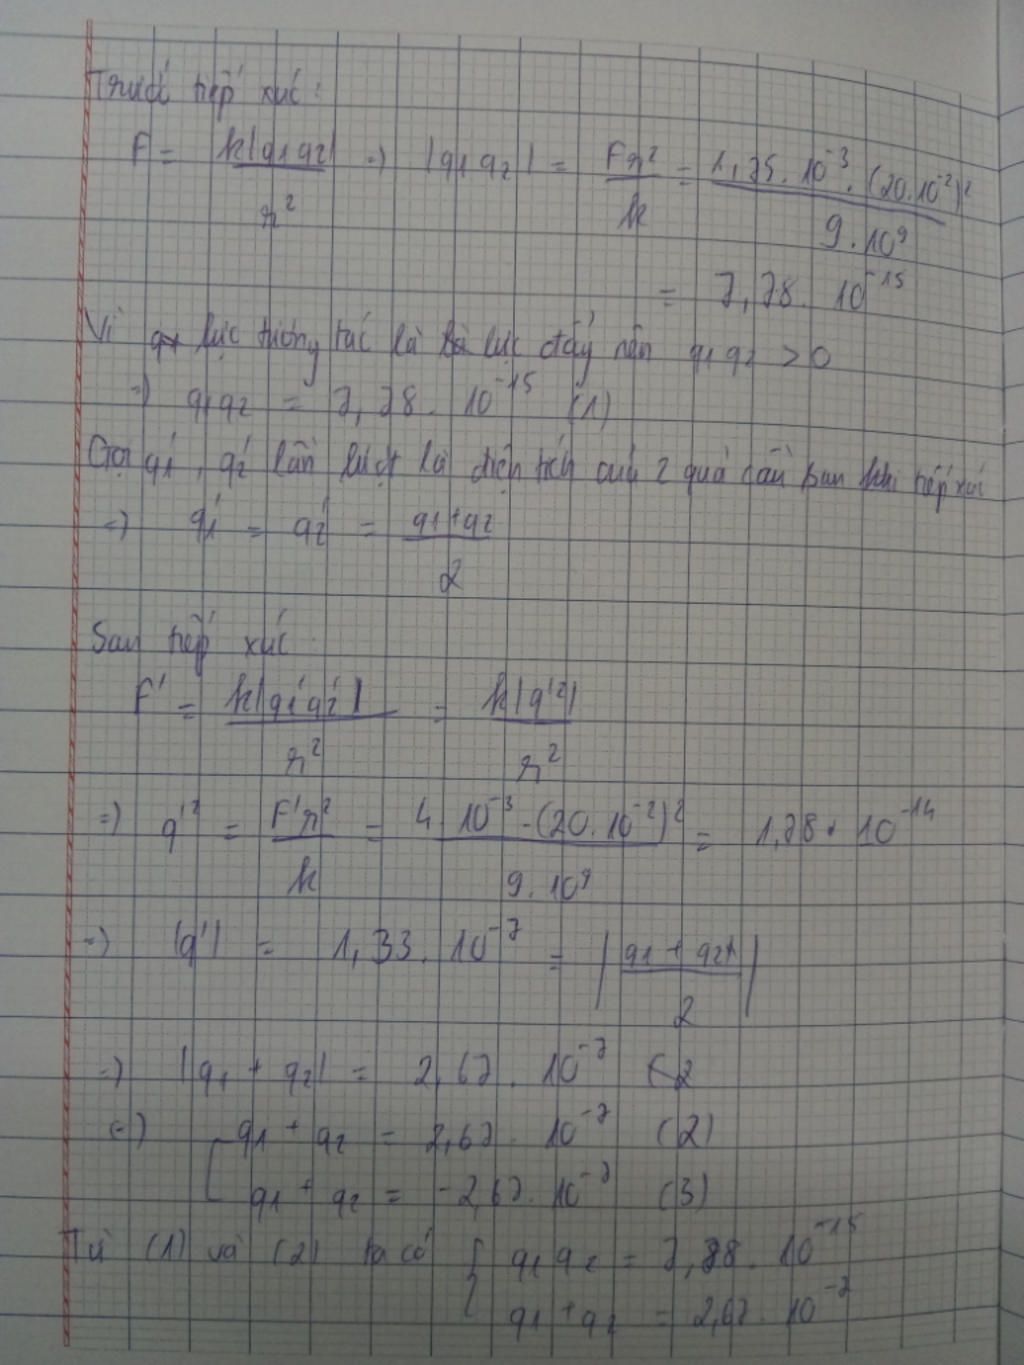 Trước tiếp xúc :
F = k|q1q2| / r² => |q1q2| = Fr² / k = 1,75. 10⁻³. (20.10⁻²)² / 9.10⁹
= 7,78. 10⁻¹⁵
Vì lực tương tác là lực đẩy nên q1q2 > 0
=> q1q2 = 7,78. 10⁻¹⁵ (1)
Gọi q1', q2' lần lượt là điện tích của 2 quả cầu sau khi tiếp xúc
=> q1' = q2' = q1+q2 / 2
Sau tiếp xúc
F' = k|q1'q2'| / r² = k|q'²| / r²
=> q'² = F'r² / k = 4. 10⁻³.(20.10⁻²)² / 9.10⁹ = 1,78. 10⁻¹⁴
=> |q'| = 1,33. 10⁻⁷ = |q1 + q2 / 2|
=> |q1 + q2| = 2,67. 10⁻⁷
<=> [ q1 + q2 = 2,67. 10⁻⁷ (2)
q1 + q2 = -2,67. 10⁻⁷ (3)
Từ (1) và (2) ta có { q1q2 = 7,78. 10⁻¹⁵
q1+q2 = 2,67. 10⁻⁷